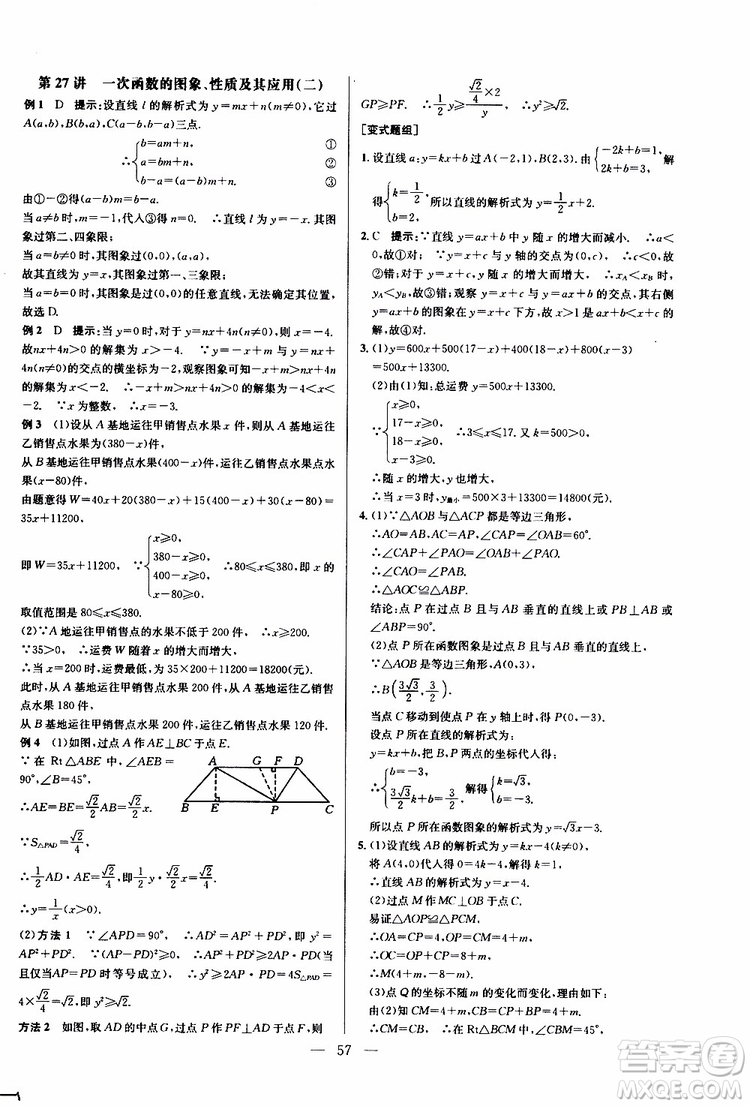 第 27 讲　一次函数的图象、性质及其应用(二)
例 1　D　提示:设直线 l 的解析式为 y=mx+n(m≠0),它过
A(a,b),B(b,a),C(a-b,b-a)三点.
∴{b=am+n, ①
a=bm+n, ②
b-a=(a-b)m+n. ③
由①-②得(a-b)m=b-a.
当 a≠b 时,m=-1,代入③得 n=0. ∴直线 l 为 y=-x. 其图
象过第二、四象限;
当 a=b≠0 时,其图象过(0,0),(a,a),
故其直线为 y=x,其图象过第一、三象限;
当 a=b=0 时,其图象是过(0,0)的任意直线,无法确定其位置.
故选 D.
例 2　D　提示:当 y=0 时,对于 y=nx+4n,则 n=-4.
故 nx+4n>0 的解集为 x>-4. ∵y=-x+m 与 y=nx+
4n(n≠0)的交点的横坐标为-2,观察图象可知-x+m>nx
+4n 的解集为 x<-2. ∴-x+m>nx+4n>0 的解集为-4<x<
-2. ∵x 为整数,∴x=-3.
例 3　(1)设从 A 基地运往甲销售点水果 x 件,则从 A 基地运往
乙销售点水果为(380-x)件,
从 B 基地运往甲销售点水果(400-x)件,运往乙销售点水
果(x-80)件,
由题意得 W=40x+20(380-x)+15(400-x)+30(x-80)=
35x+11200,
即 W=35x+11200, ∵{x≥0,
380-x≥0,
400-x≥0,
x-80≥0,
∴80≤x≤380,即 x 的
取值范围是 80≤x≤380.
(2)∵A 地运往甲销售点水果不低于 200 件,∴x≥200.
∵35>0,∴运费 W 随着 x 的增大而增大,
∴当 x=200 时,运费最低,为 35×200+11200=18200(元).
此时,从 A 基地运往甲销售点水果 200 件,从 A 基地运往乙销
售点水果 180 件,
从 B 基地运往甲销售点水果 200 件,运往乙销售点水果 120 件.
例 4　(1)如图,过点 A 作 AE⊥BC 于点 E.
∵在 Rt△ABE 中,∠B=45°,
∴AE=BE=√2/2 AB=√2/2 x.
∵S△PAD=√2/4,
∴1/2 AD·AE=1/2 y·√2/2 x=√2/4.
∴y=1/x(x>0).
A G F D
B E P C
(2)方法 1　∵∠APD=90°,∴AD²=AP²+PD²,即 y²=
AP²+PD²≥2AP·PD(当
且仅当 AP=PD 时等号成立),∴y²≥2AP·PD=4S△PAD=
4×√2/4=√2.
方法 2　如图,取 AD 的中点 G,过点 P 作 PF⊥AD 于点 F,则
GP≥PF. ∴1/2 y≥(√2/4×2)/y. ∴y²≥√2.
[变式题组]
1. 设直线 a:y=kx+b 过 A(-2,1),B(2,3). 由{-2k+b=1,
2k+b=3, 解
得{k=1/2,
b=2.
所以直线的解析式为 y=1/2 x+2.
2. C　提示:∵直线 y=ax+b 中 y 随 x 的增大而减小. ∴a<0
故①正确;∵直线 y=x+c 与 y 轴的交点在负半轴上. ∴c<0.
故②错;∵直线 y=x+c 中 y 随 x 的增大而增大,∴xA<xB 时,
yA<yB,故③错;观察图象可知,当 x>3 时,在交点的右侧
y=ax+b 的图象在 y=x+c 下方,故 x+c>ax+b.
故④错.
3. (1)y=600x+500(17-x)+400(18-x)+800(x-3)
=500x+13300.
(2)由(1)知:总运费 y=500x+13300.
∵{x≥0,
17-x≥0,
18-x≥0,
x-3≥0.
∴3≤x≤17. 又 k=500>0,
∴随 x 的增大,y 增大,
∴当 x=3 时,y最小=500×3+13300=14800(元).
4. (1)∵△AOB 与△ACP 都是等边三角形,
∴AO=AB,AC=AP,∠CAP=∠OAB=60°.
∴∠CAP+∠PAO=∠OAB+∠PAO.
∴∠CAO=∠PAB.
∴△AOC≌△ABP.
结论:点 P 所在的直线始终是过点 B 且与 AB 垂直的直线,即
∠ABP=90°.
(2)点 P 所在函数图象是过点 B 且与 AB 垂直的直线.
∵△AOB 是等边三角形,A(0,3),
∴B(3√3/2,3/2).
当点 C 移动到使点 P 在 y 轴上时,得 P(0,-3).
设点 P 所在的直线的解析式为
y=kx+b. 把 B、P 两点的坐标代入得
{b=-3,
3√3/2 k+b=3/2.
解得{k=√3,
b=-3.
所以点 P 所在函数图象的解析式为 y=√3x-3.
5. (1)设直线 AB 的解析式为 y=kx-4(k≠0),
将 A(4,0)代入得 0=4k-4,解得 k=1.
∴直线 AB 的解析式为 y=x-4.
(2)过点 M 作 MC⊥OP 于点 C.
易证△AOP≌△PCM.
∴OA=CP=4,CM=OP=m.
∴OC=OP+CP=m+4.
∴M(4,-m-4).
(3)点 Q 的坐标不随 m 的变化而变化.
由(2)知:OP=m=CM,BC=OC-4=m+4-4=m.
∴CM=CB. ∴在 Rt△MCB 中,∠CBM=45°.
— 57 —
答案圈
MXQE.COM